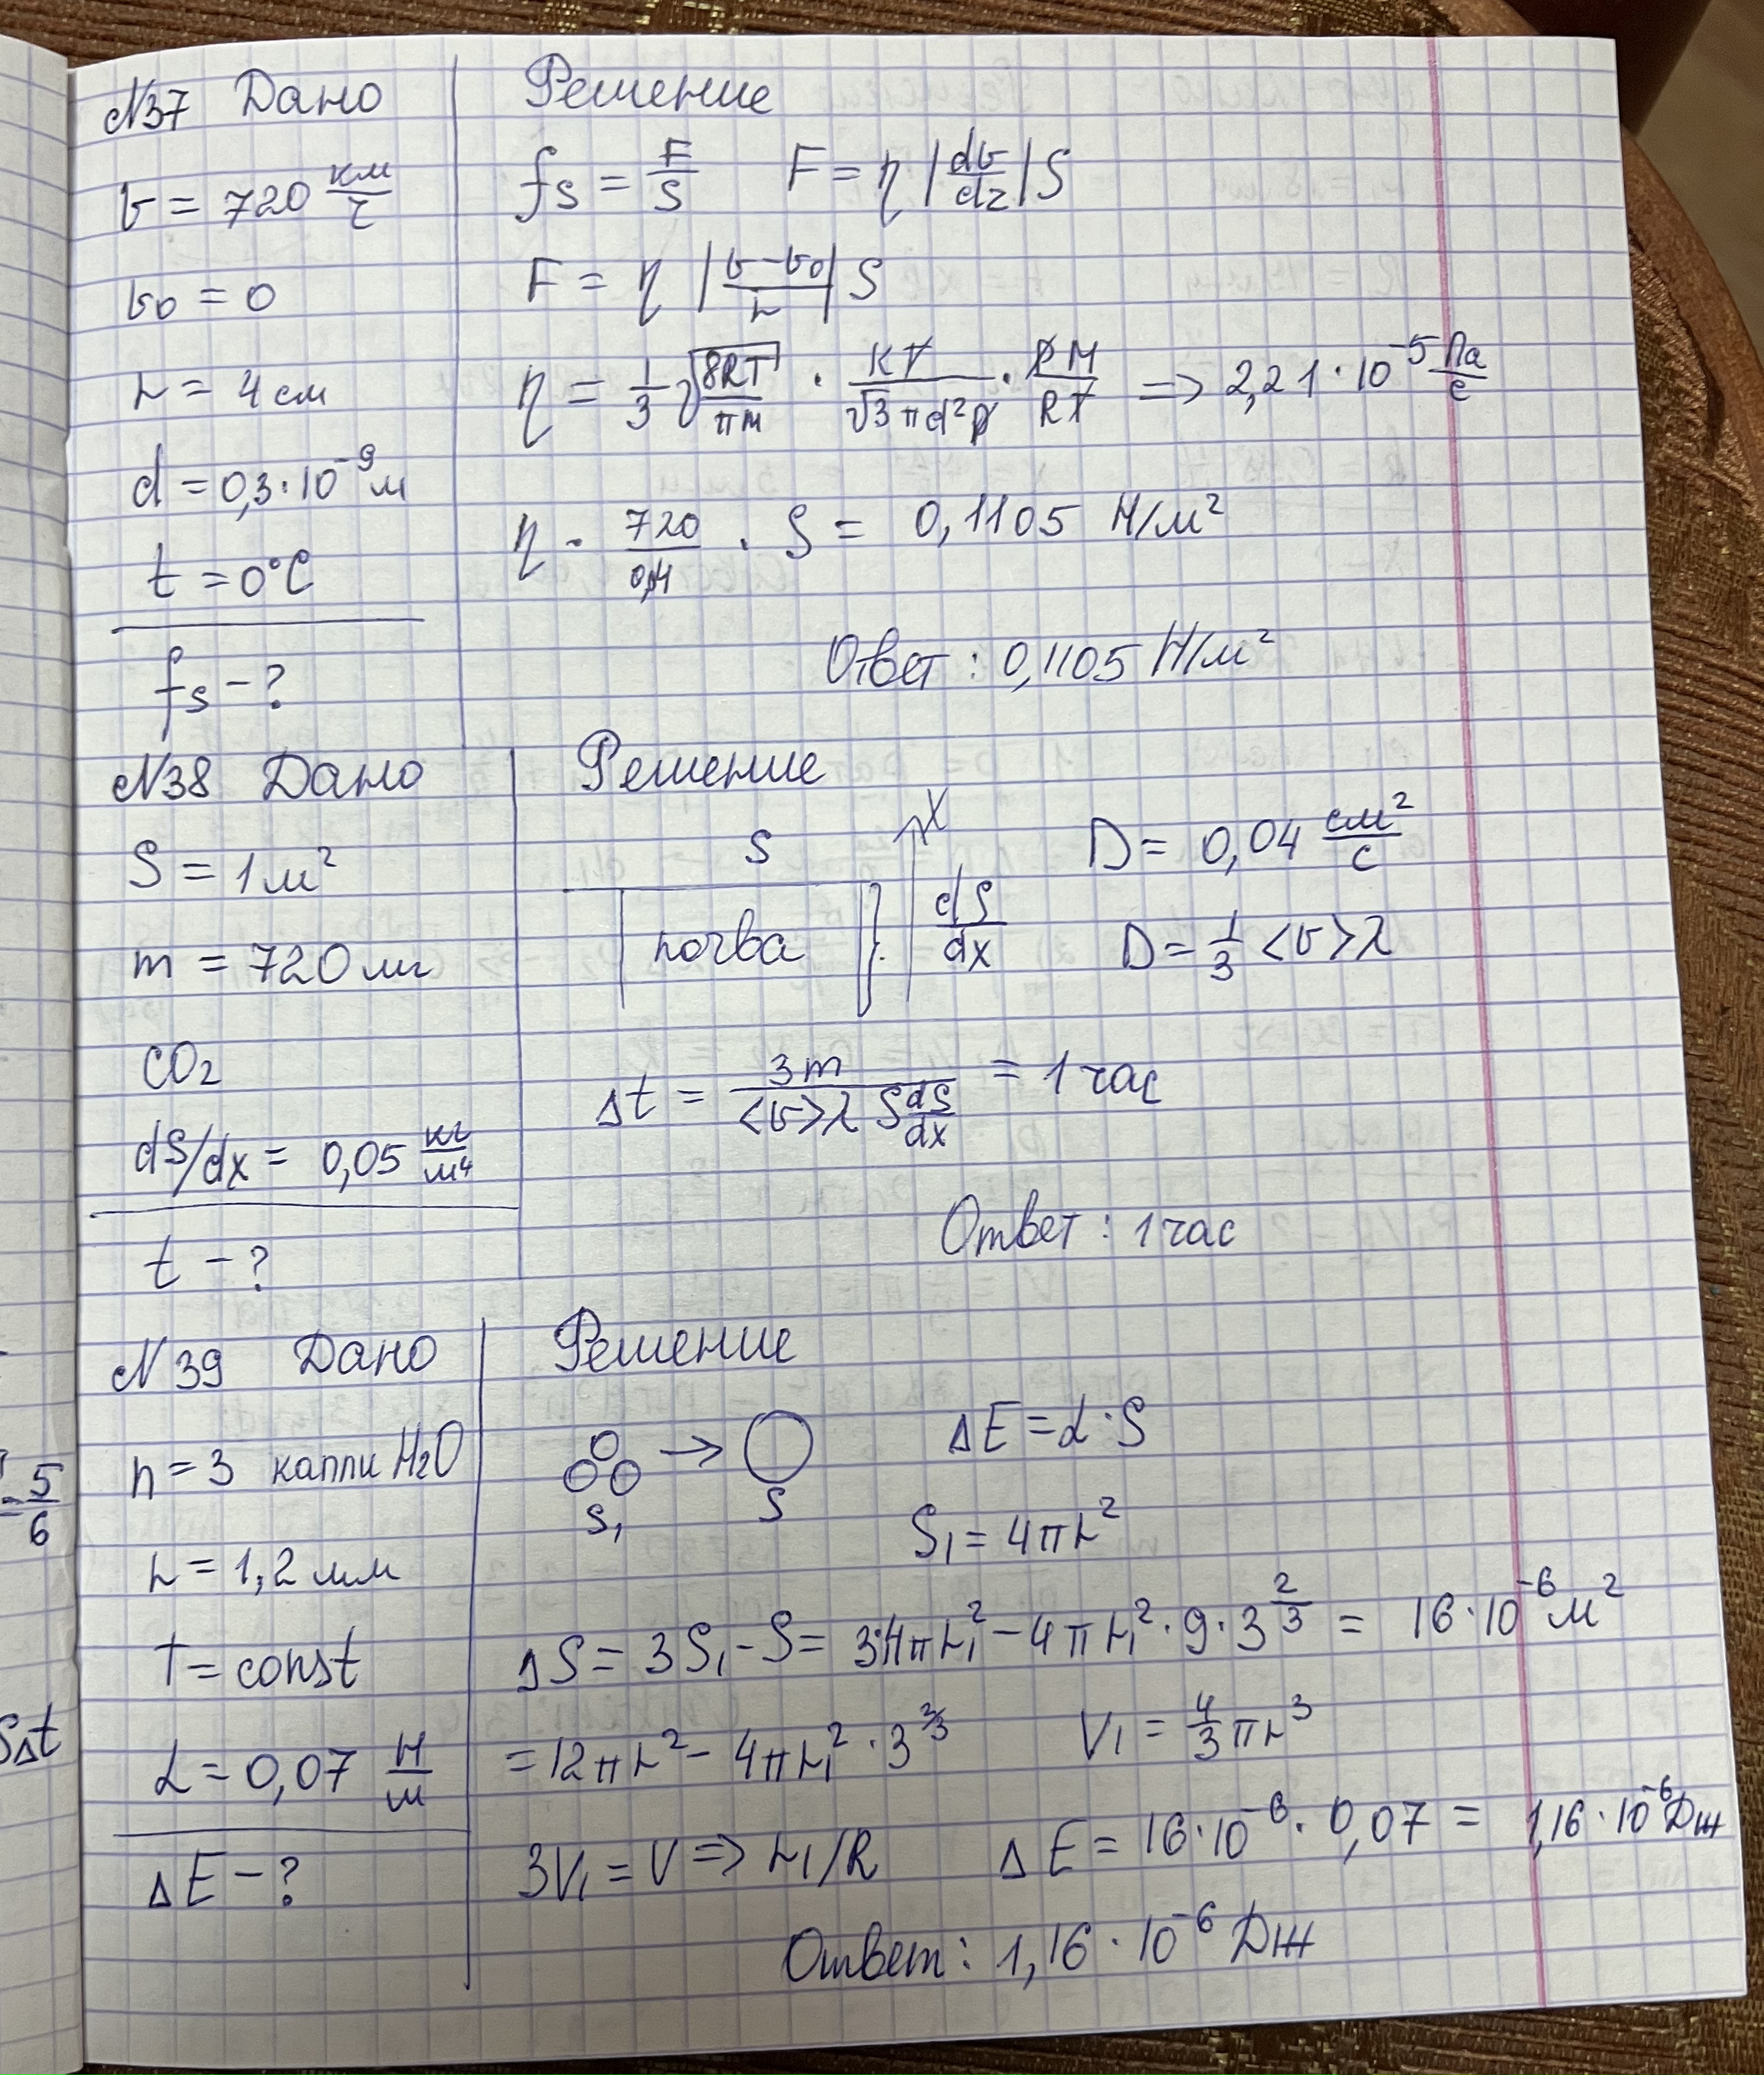 N37 Дано
υ = 720 км/ч
υ₀ = 0
r = 4 см
d = 0,3·10⁻⁹ м
t = 0°C
fs - ?
Решение
fs = F/S F = η |dυ/dz| S
F = η |υ-υ₀/r| S
η = 1/3 √(8RT/πM) · KT/(√3 πd²p) · PM/RT => 2,21·10⁻⁵ Па/с
η · 720/0,4 · S = 0,1105 Н/м²
Ответ: 0,1105 Н/м²
N38 Дано
S = 1 м²
m = 720 мг
CO₂
dS/dx = 0,05 кг/м⁴
t - ?
Решение
S X D = 0,04 см²/с
почва dS/dx D = 1/3 <υ>λ
Δt = 3m/(<υ>λ S dS/dx) = 1 час
Ответ: 1 час
N 39 Дано
n = 3 капли H₂O
r = 1,2 мм
T = const
α = 0,07 Н/м
ΔE - ?
Решение
→ ΔE = α·S
S₁ S
S₁ = 4πr²
ΔS = 3S₁ - S = 3·4πr₁² - 4πr₁²·9·3^(2/3) = 16·10⁻⁶ м²
= 12πr² - 4πr₁²·3^(2/3) V₁ = 4/3 πr³
3V₁ = V => r₁/R ΔE = 16·10⁻⁶·0,07 = 1,16·10⁻⁶ Дж
Ответ: 1,16·10⁻⁶ Дж
= 5/6
SΔt